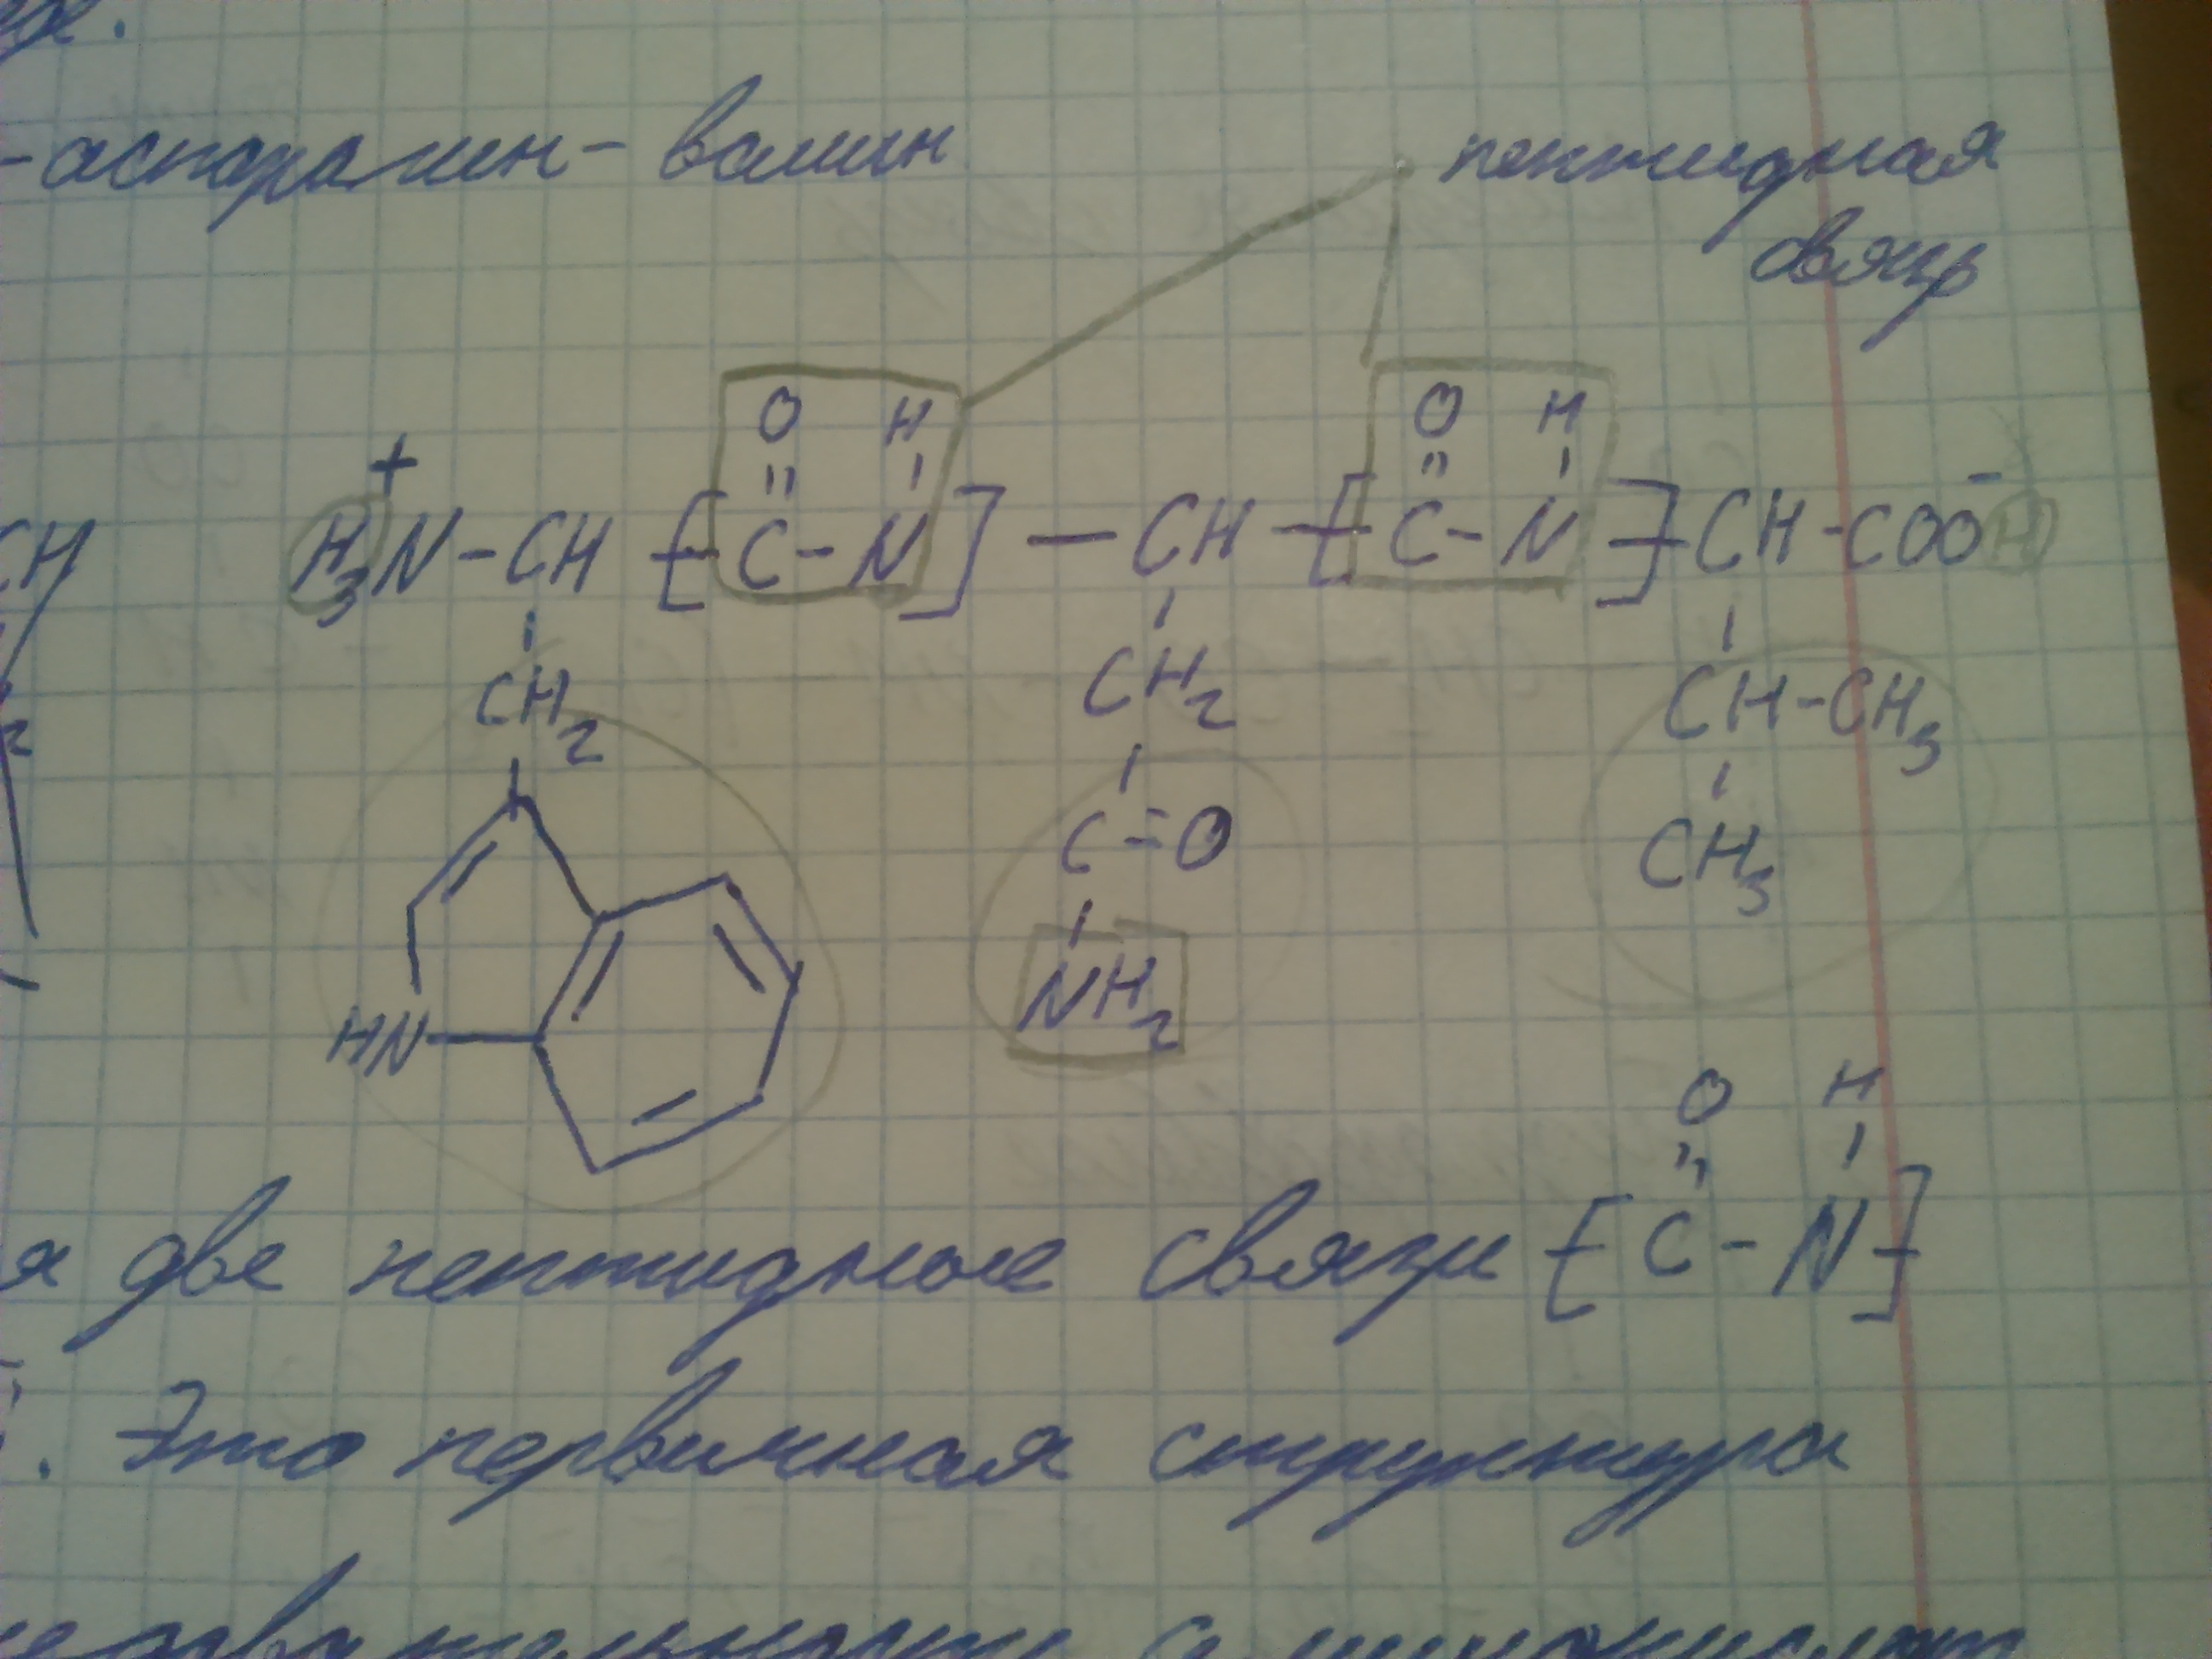 -аспарагин- валин
пептидная
связь
O H O H
H₃N⁺-CH-[C-N]-CH-[C-N]-CH-COO⁻H
CH₂ CH₂ CH-CH₃
C=O CH₃
HN NH₂
O H
я две пептидные связи [C-N]
. Это первичная структура
аминокислот